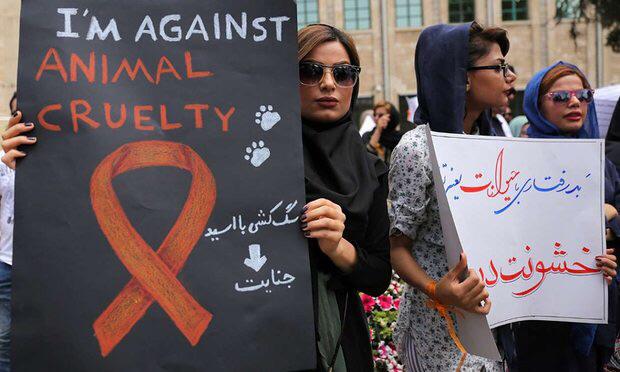 I'M AGAINST
ANIMAL
CRUELTY
سگ کشی با اسید
جنایت
بَدرفتاری با حیوانات یعنی
خشونت در